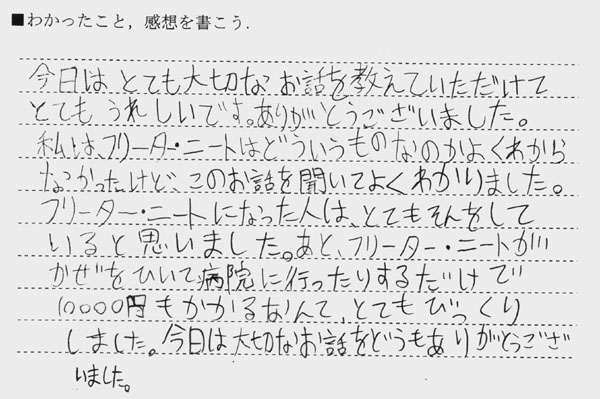 ■わかったこと，感想を書こう.
今日はとても大切なお話を教えていただけて
とてもうれしいです。ありがとうございました。
私は、フリーター・ニートはどういうものなのかよくわから
なかったけど、このお話を聞いてよくわかりました。
フリーター・ニートになった人は、とてもそんをして
いると思いました。あと、フリーター・ニートが
かぜをひいて病院に行ったりするだけで
10000円もかかるなんて、とてもびっくり
しました。今日は大切なお話をどうもありがとうござ
いました。